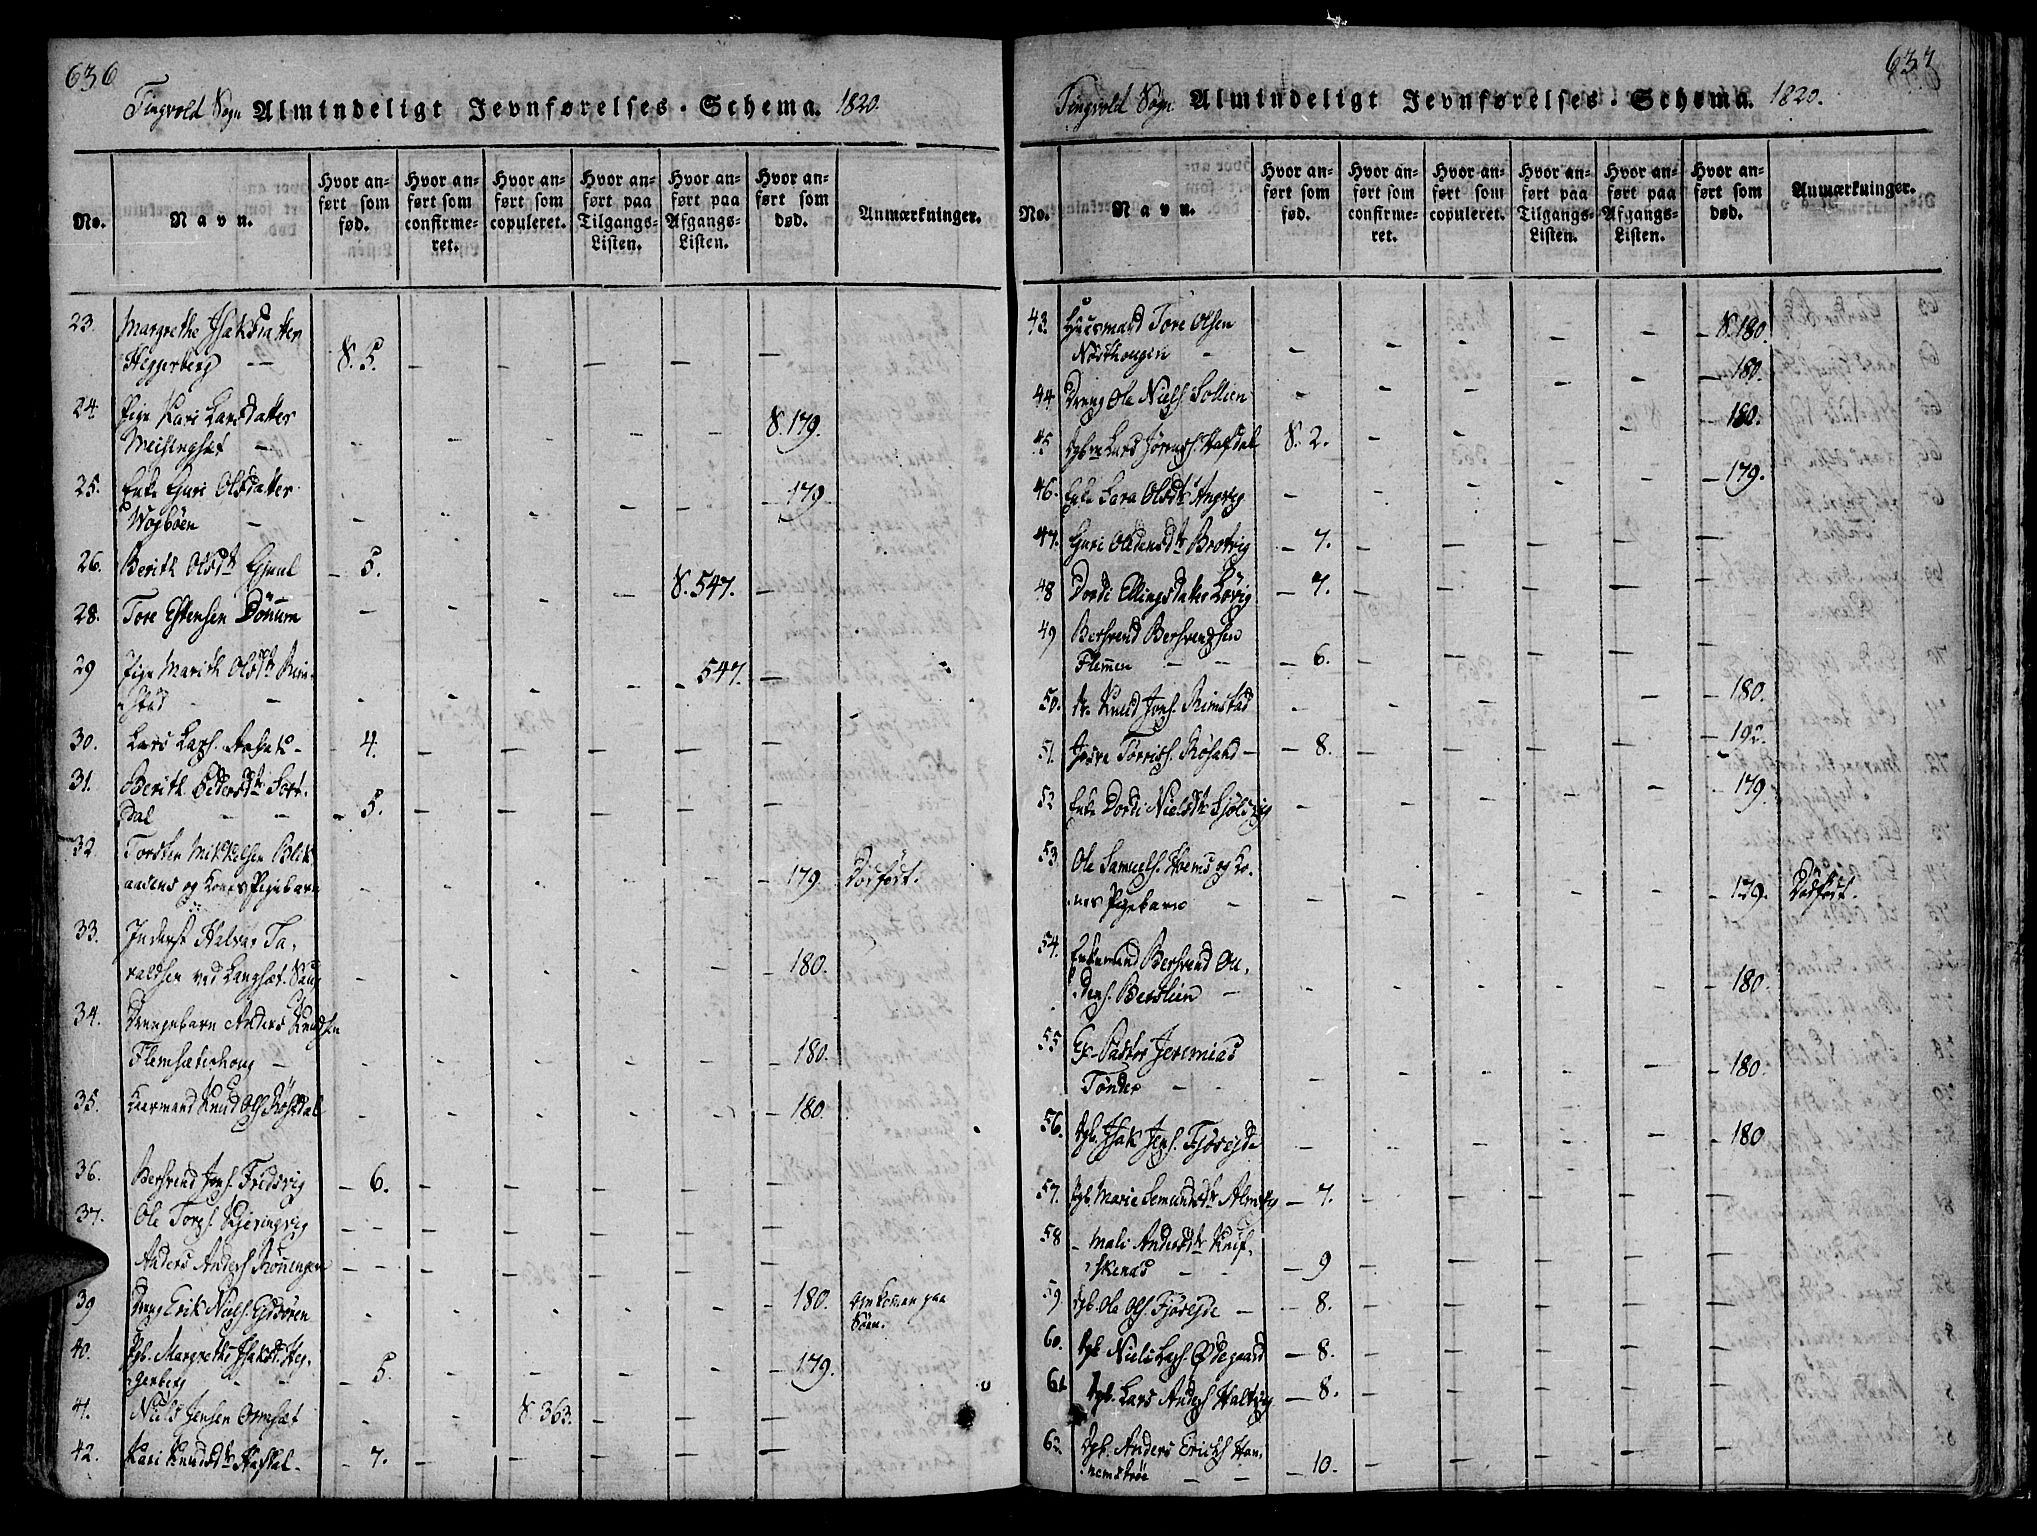 636
Tingvold Sogn Almindeligt Jevnførelses-Schema. 1820.
No. Navn. Hvor anført som født. Hvor anført som confirmeret. Hvor anført som copuleret. Hvor anført paa Tilgangs-Listen. Hvor anført paa Afgangs-Listen. Hvor anført som død. Anmærkninger.
23. Margrethe Isaksdatter
Heggerberg — S. 5. — — — — —
24. Pige Kari Larsdatter
Meisingset — - - - - - S. 179.
25. Enke Guri Olsdatter
Wogbøen — - - - - - — 179.
26. Berith Olsdtr Gjeul — 5. — — — S. 547. —
28. Tore Estensen Donum — - - — —
29 Pige Marith Olsdtr Rim-
stad — — - - - - — 547. —
30. Lars Lars. Aasets — 4. — — — — —
31. Berith Pedersdtr Sort-
dal — — — 5. — — — — —
32. Torsten Mikkelsen Blik-
aasens og Kones Pigebarn - - - - - — 179. Dødfødt.
33. Inderst Halvor Ta-
raldsen ved Langset - - - - — — 180.
34. Drengebarn Anders Knudsen
Flemsæterhoug — - - - - - — 180.
35. Kaarmand Knud Ols. - - - - - — 180.
36. Berhrend Jons. Fredsvig — 6. — — — — —
37. Ole Tores. Gjeringvig — — — — — — —
Anders Anders. Rønningen — — — — — — —
39 Dreng Erik Niels. - - - - - — 180. Omkommen paa
Søen.
40. Pgb. Margrethe Isaksd. Heg-
gerberg — — 5. - - - - — 179.
41. Niels Jensen Ormset - - S. 363. — — —
42. Kari Knudsdtr Hafdal — 7. — — — — —
637
Tingvold Sogn Almindeligt Jevnførelses-Schema. 1820.
No. Navn. Hvor anført som født. Hvor anført som confirmeret. Hvor anført som copuleret. Hvor anført paa Tilgangs-Listen. Hvor anført paa Afgangs-Listen. Hvor anført som død. Anmærkninger.
43. Huusmand Tore Olsen
Nørthougen — - - - - — S. 180.
44 Dreng Ole Niels. Sollien - - - - - — 180.
45 Lars Jørens. Hafsdal S. 2. - - - - — 180.
46. Enke Sara Olsdtr Angvig - - - - - — 179.
47. Guri Oldensdtr Brotvig — 7. — — — — —
48 Dordi Ellingsdatter Løvig — 7. — — — — —
49 Berhrend Berhrendsen
Flemmen — — — 6. — — — — —
50. Knud Jons. Rimstad - - - - - — 180.
51. Tørris. Røsand — — 8. — — — — — 192.
52 Enke Dordi Nielsdtr - - - - - — 179.
53. Ole Samuels. Hoems og Ko-
nes Pigebarn — - - - - - — 179. Dødfødt.
54. Enkemand Berhrend Ou-
dens. Berslien — - - - - - — 180.
55 Ex-Pastor Jeremias
Tønder — — - - - - - — 180.
56. Dgb. Isak Jens. Fjøseide - - - - - — 180
57. Pgb. Marie Semundsdtr — 7. — — — — —
58 — Mali Andersdtr Knif-
skenas — — — 9 — — — — —
59 Dgb. Ole Ols. Fjøseide — — 8. — — — — —
60. Dgb. Niels Lars. Ødegaard — 8. — — — — —
61 Dgb. Lars Anders. Haltvig — 8. — — — — —
62. Dgb. Anders Erichs. Ham-
nemstrøe — — — 10. — — — — —